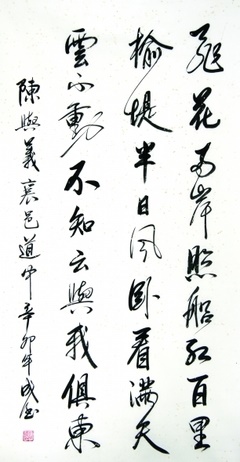 飛花兩岸照船紅百里
榆堤半日風卧看滿天
雲不動不知云與我俱東
陳與義襄邑道中辛卯年成書